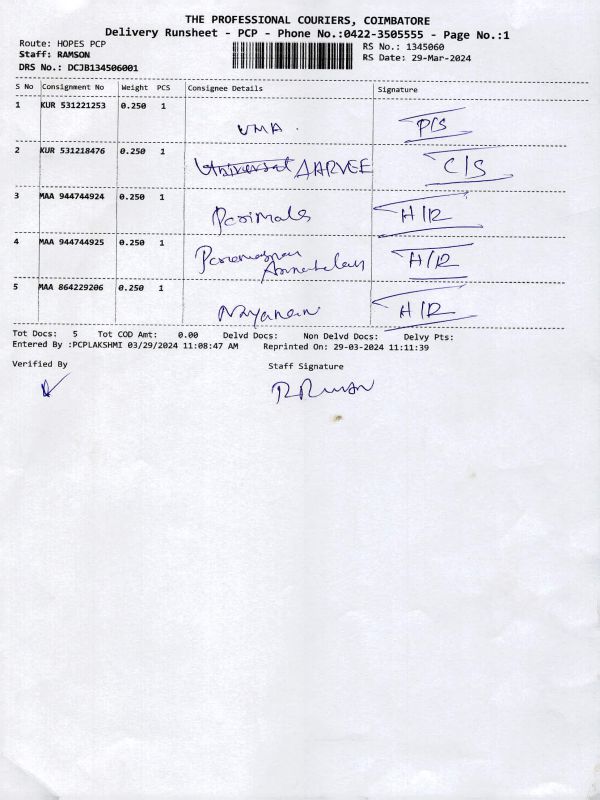 THE PROFESSIONAL COURIERS, COIMBATORE
Delivery Runsheet - PCP - Phone No.:0422-3505555 - Page No.:1
Route: HOPES PCP RS No.: 1345060
Staff: RAMSON RS Date: 29-Mar-2024
DRS No.: DCJB134506001
S No Consignment No Weight PCS Consignee Details Signature
1 KUR 531221253 0.250 1
UMA. P/S
2 KUR 531218476 0.250 1
Universal AARVEE C/S
3 MAA 944744924 0.250 1
Parimala H/R
4 MAA 944744925 0.250 1
H/R
5 MAA 864229206 0.250 1
H/R
Tot Docs: 5 Tot COD Amt: 0.00 Delvd Docs: Non Delvd Docs: Delvy Pts:
Entered By :PCPLAKSHMI 03/29/2024 11:08:47 AM Reprinted On: 29-03-2024 11:11:39
Verified By Staff Signature